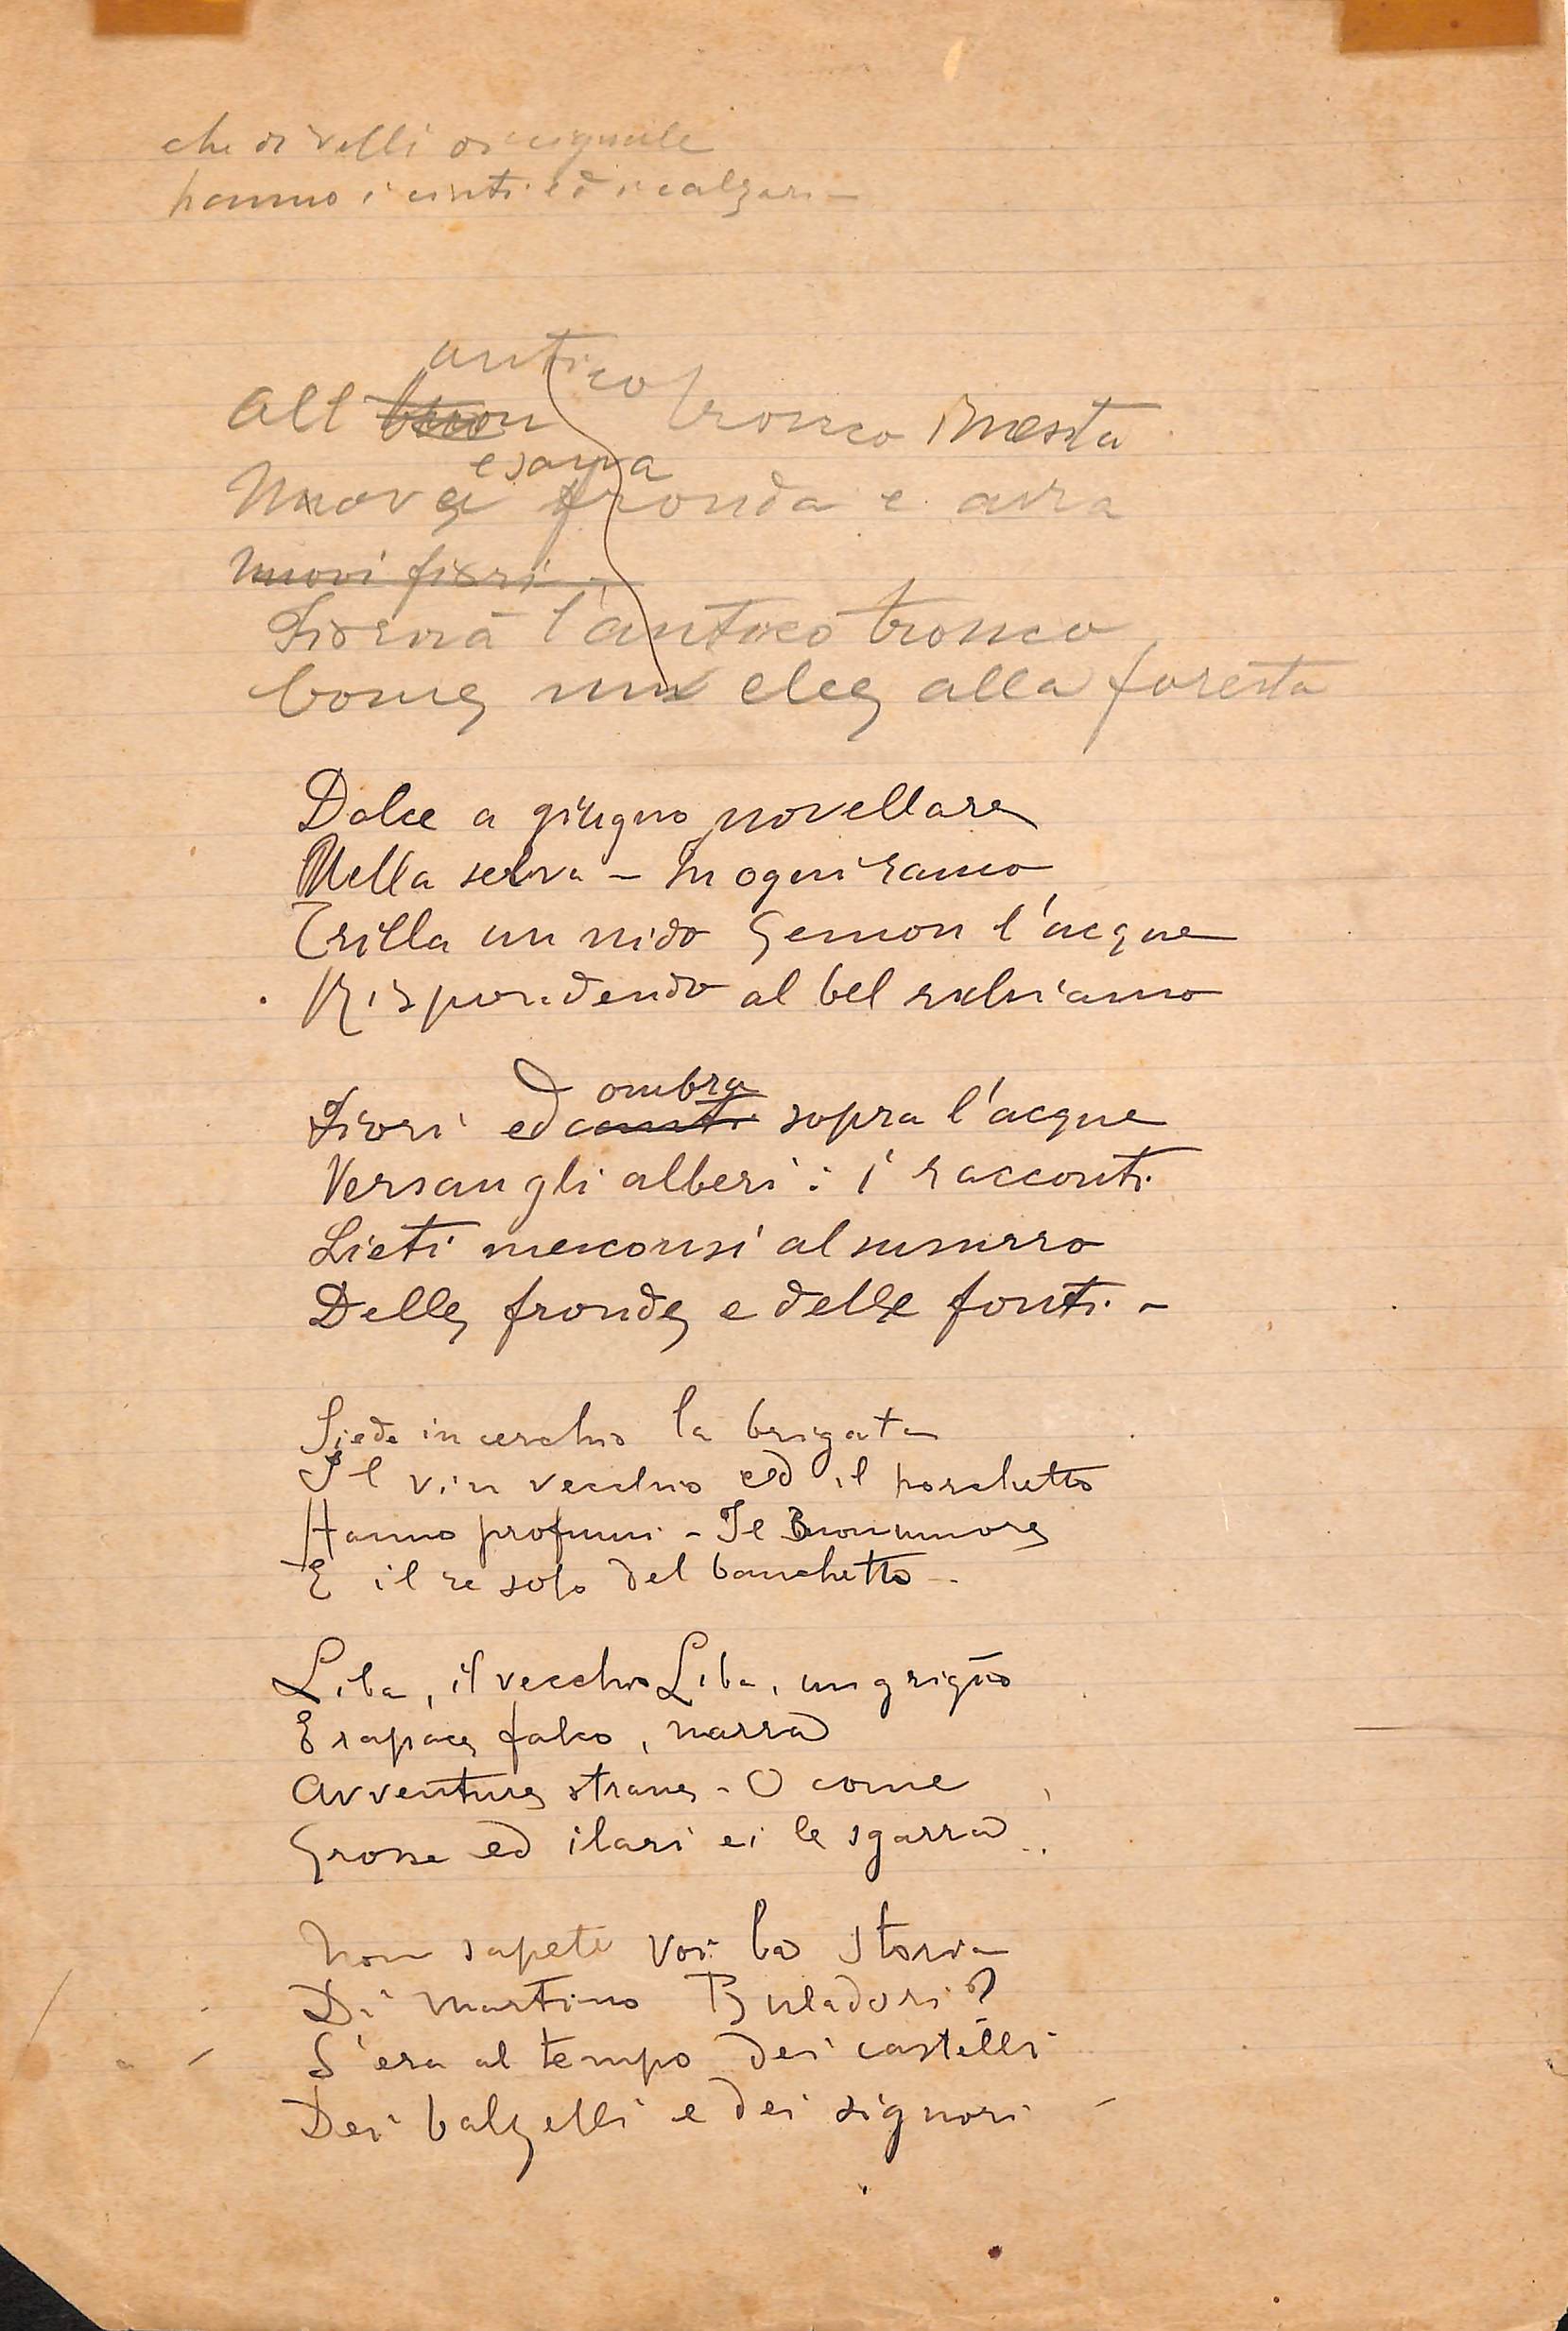 che di velli di cignale
hanno i cinti ed i calzari –
antico
All buon tronco innesta
e sana
Nuova fronda e avra
nuovi fiori
Fiorirà l'antico tronco
Come un elce alla foresta
Dolce a giugno novellare
Nella selva – In ogni ramo
Trilla un nido Gemon l'acque
Rispondendo al bel richiamo
ombra
Fiori ed canti sopra l'acque
Versan gli alberi : i racconti
Lieti mesconsi al susurro
Delle fronde e delle fonti –
Siede in cerchio la brigata
Il vin vecchio ed il porchetto
Hanno profumi – Il Buonumore
È il re solo del banchetto –
Liba, il vecchio Liba, un grigio
E rapace falco, narra
Avventure strane – O come
Grosse ed ilari ei le sgarra..
Non sapete voi la storia
Di Martino Buladori?
S'era al tempo dei castelli
Dei balzelli e dei signori –